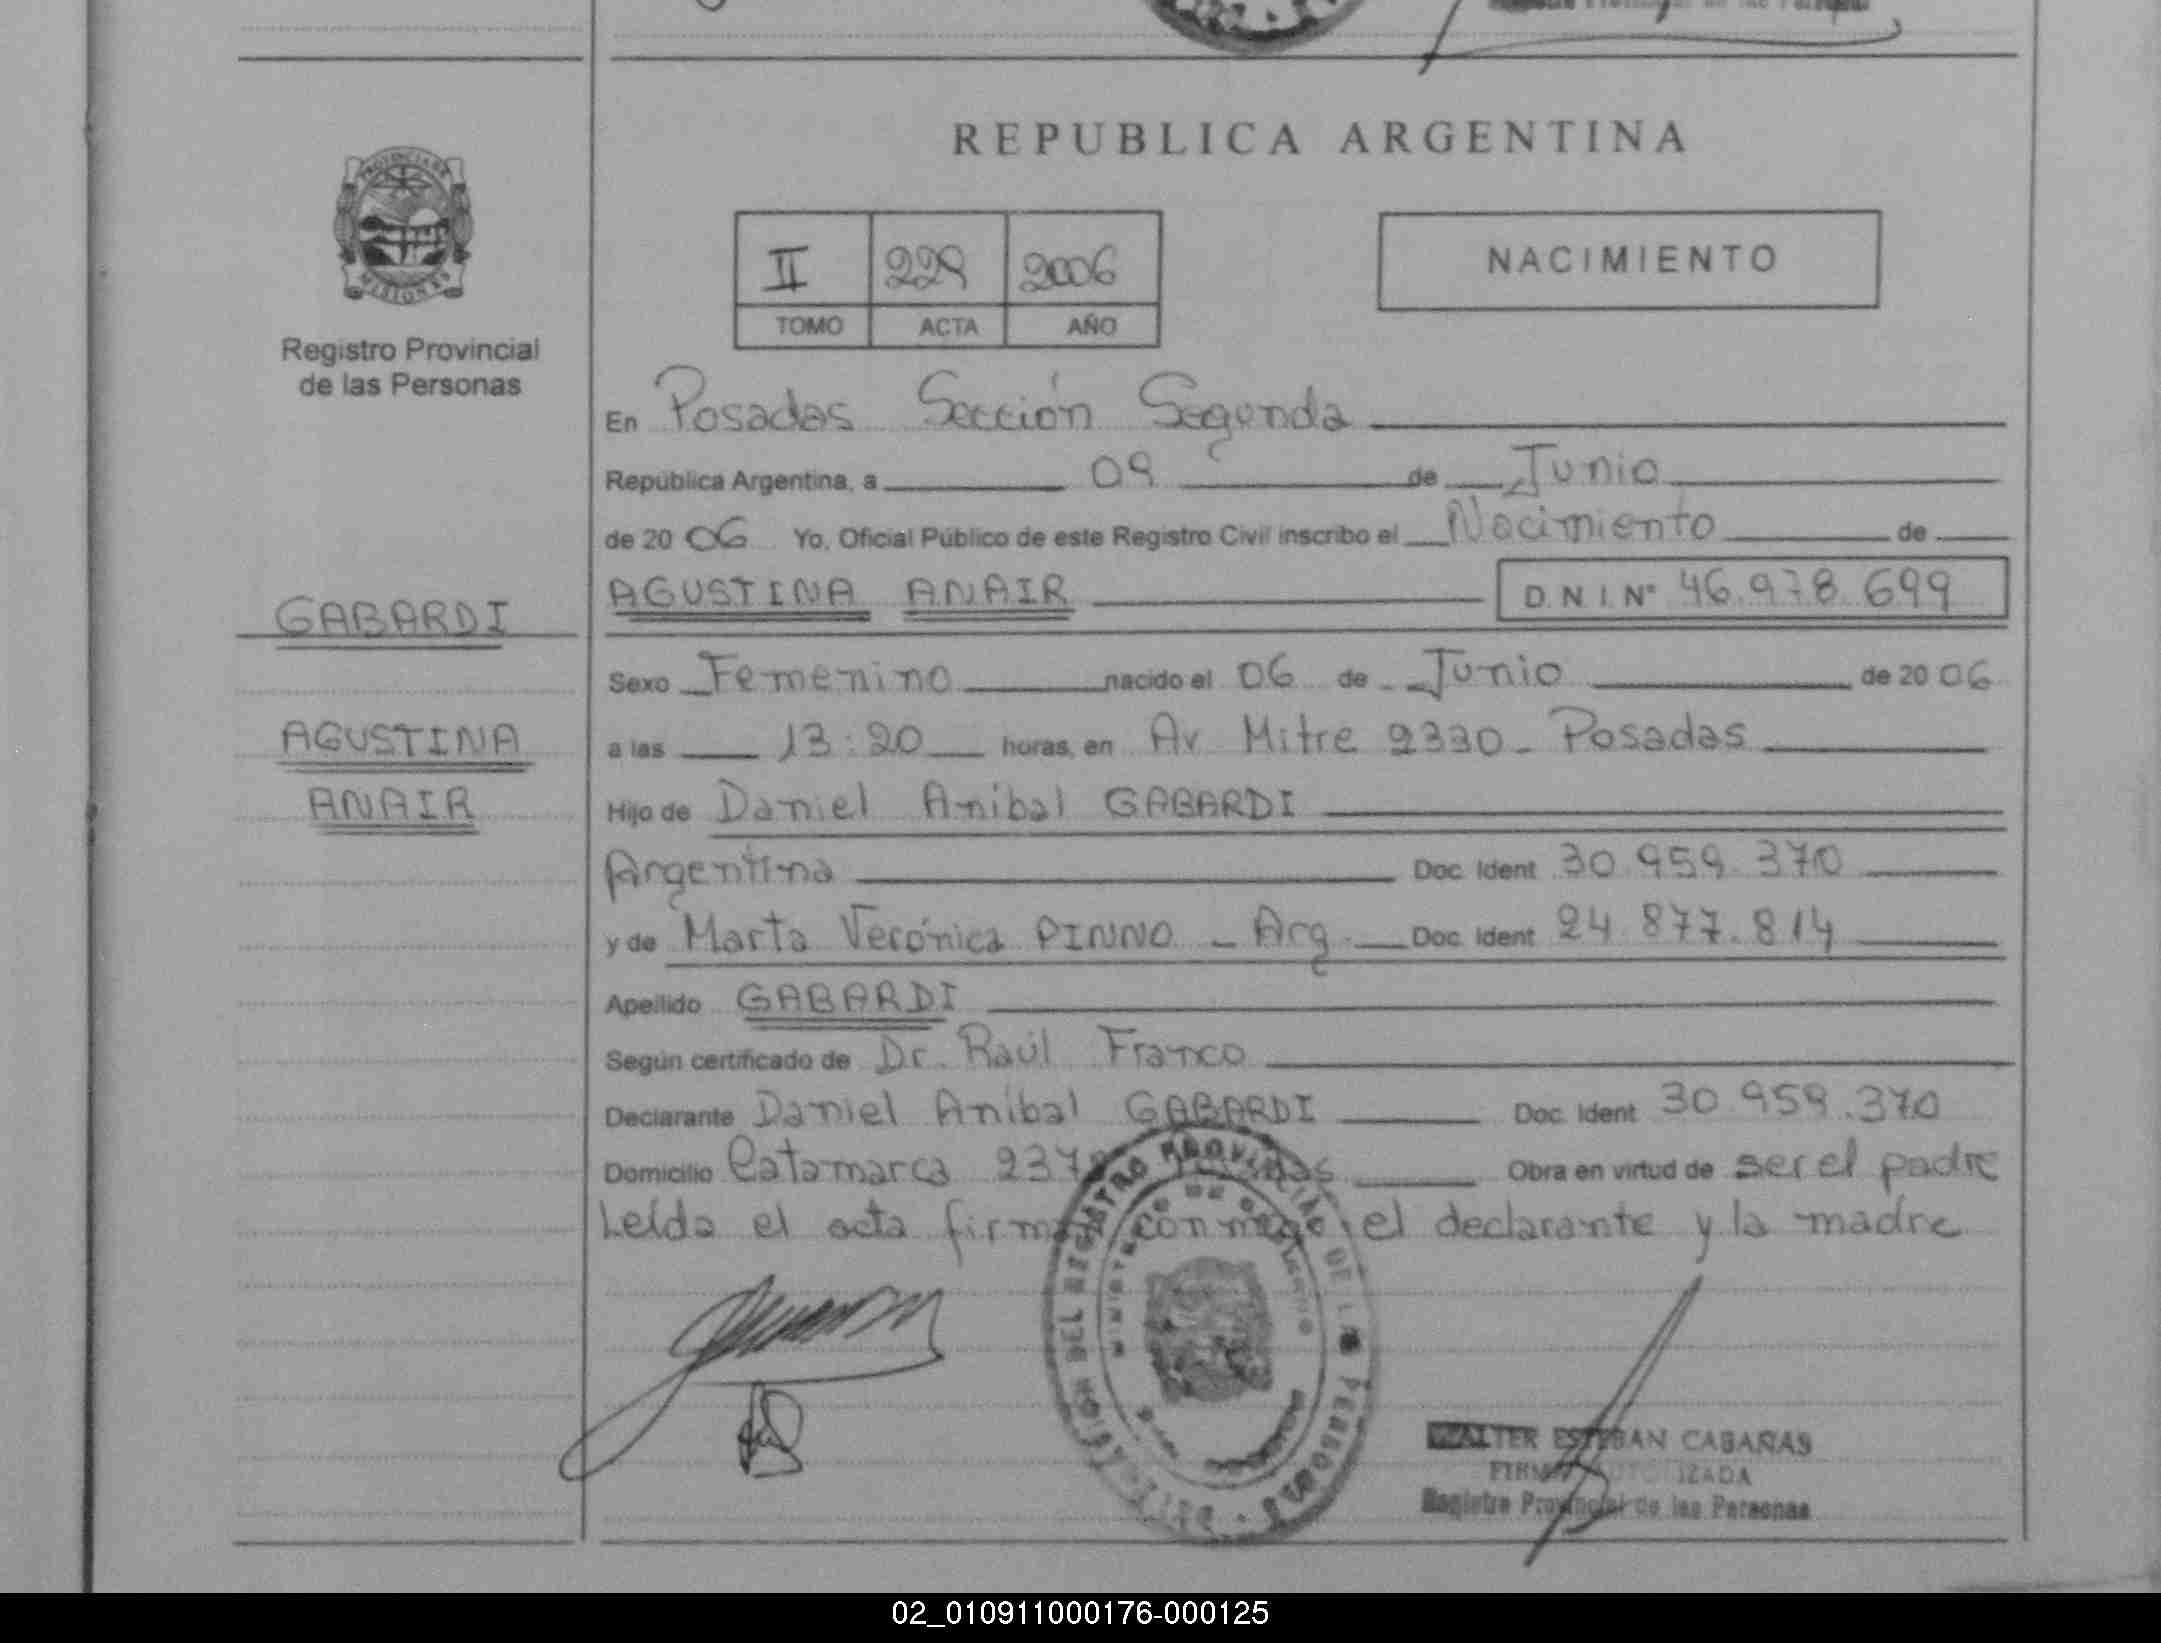 REPUBLICA ARGENTINA
PROVINCIA DE
MISIONES
Registro Provincial
de las Personas
II 229 2006
TOMO ACTA AÑO
NACIMIENTO
En Posadas Sección Segunda
República Argentina, a 09 de Junio
de 20 06 Yo, Oficial Público de este Registro Civil inscribo el Nacimiento de
AGUSTINA ANAIR D.N.I. N° 46.978.699
GABARDI
AGUSTINA
ANAIR
Sexo Femenino nacido el 06 de Junio de 20 06
a las 13:20 horas, en Av Mitre 2330 - Posadas
Hijo de Daniel Anibal GABARDI
Argentina Doc. Ident 30.959.370
y de Marta Verónica PINNO - Arg. Doc. Ident 24.877.814
Apellido GABARDI
Según certificado de Dr. Raúl Franco
Declarante Daniel Aníbal GABARDI Doc. Ident 30.959.370
Domicilio Catamarca Obra en virtud de ser el padre
Leída el acta firman conmigo el declarante y la madre
WALTER ESTEBAN CABAÑAS
FIRMA AUTORIZADA
Registro Provincial de las Personas
02_010911000176-000125